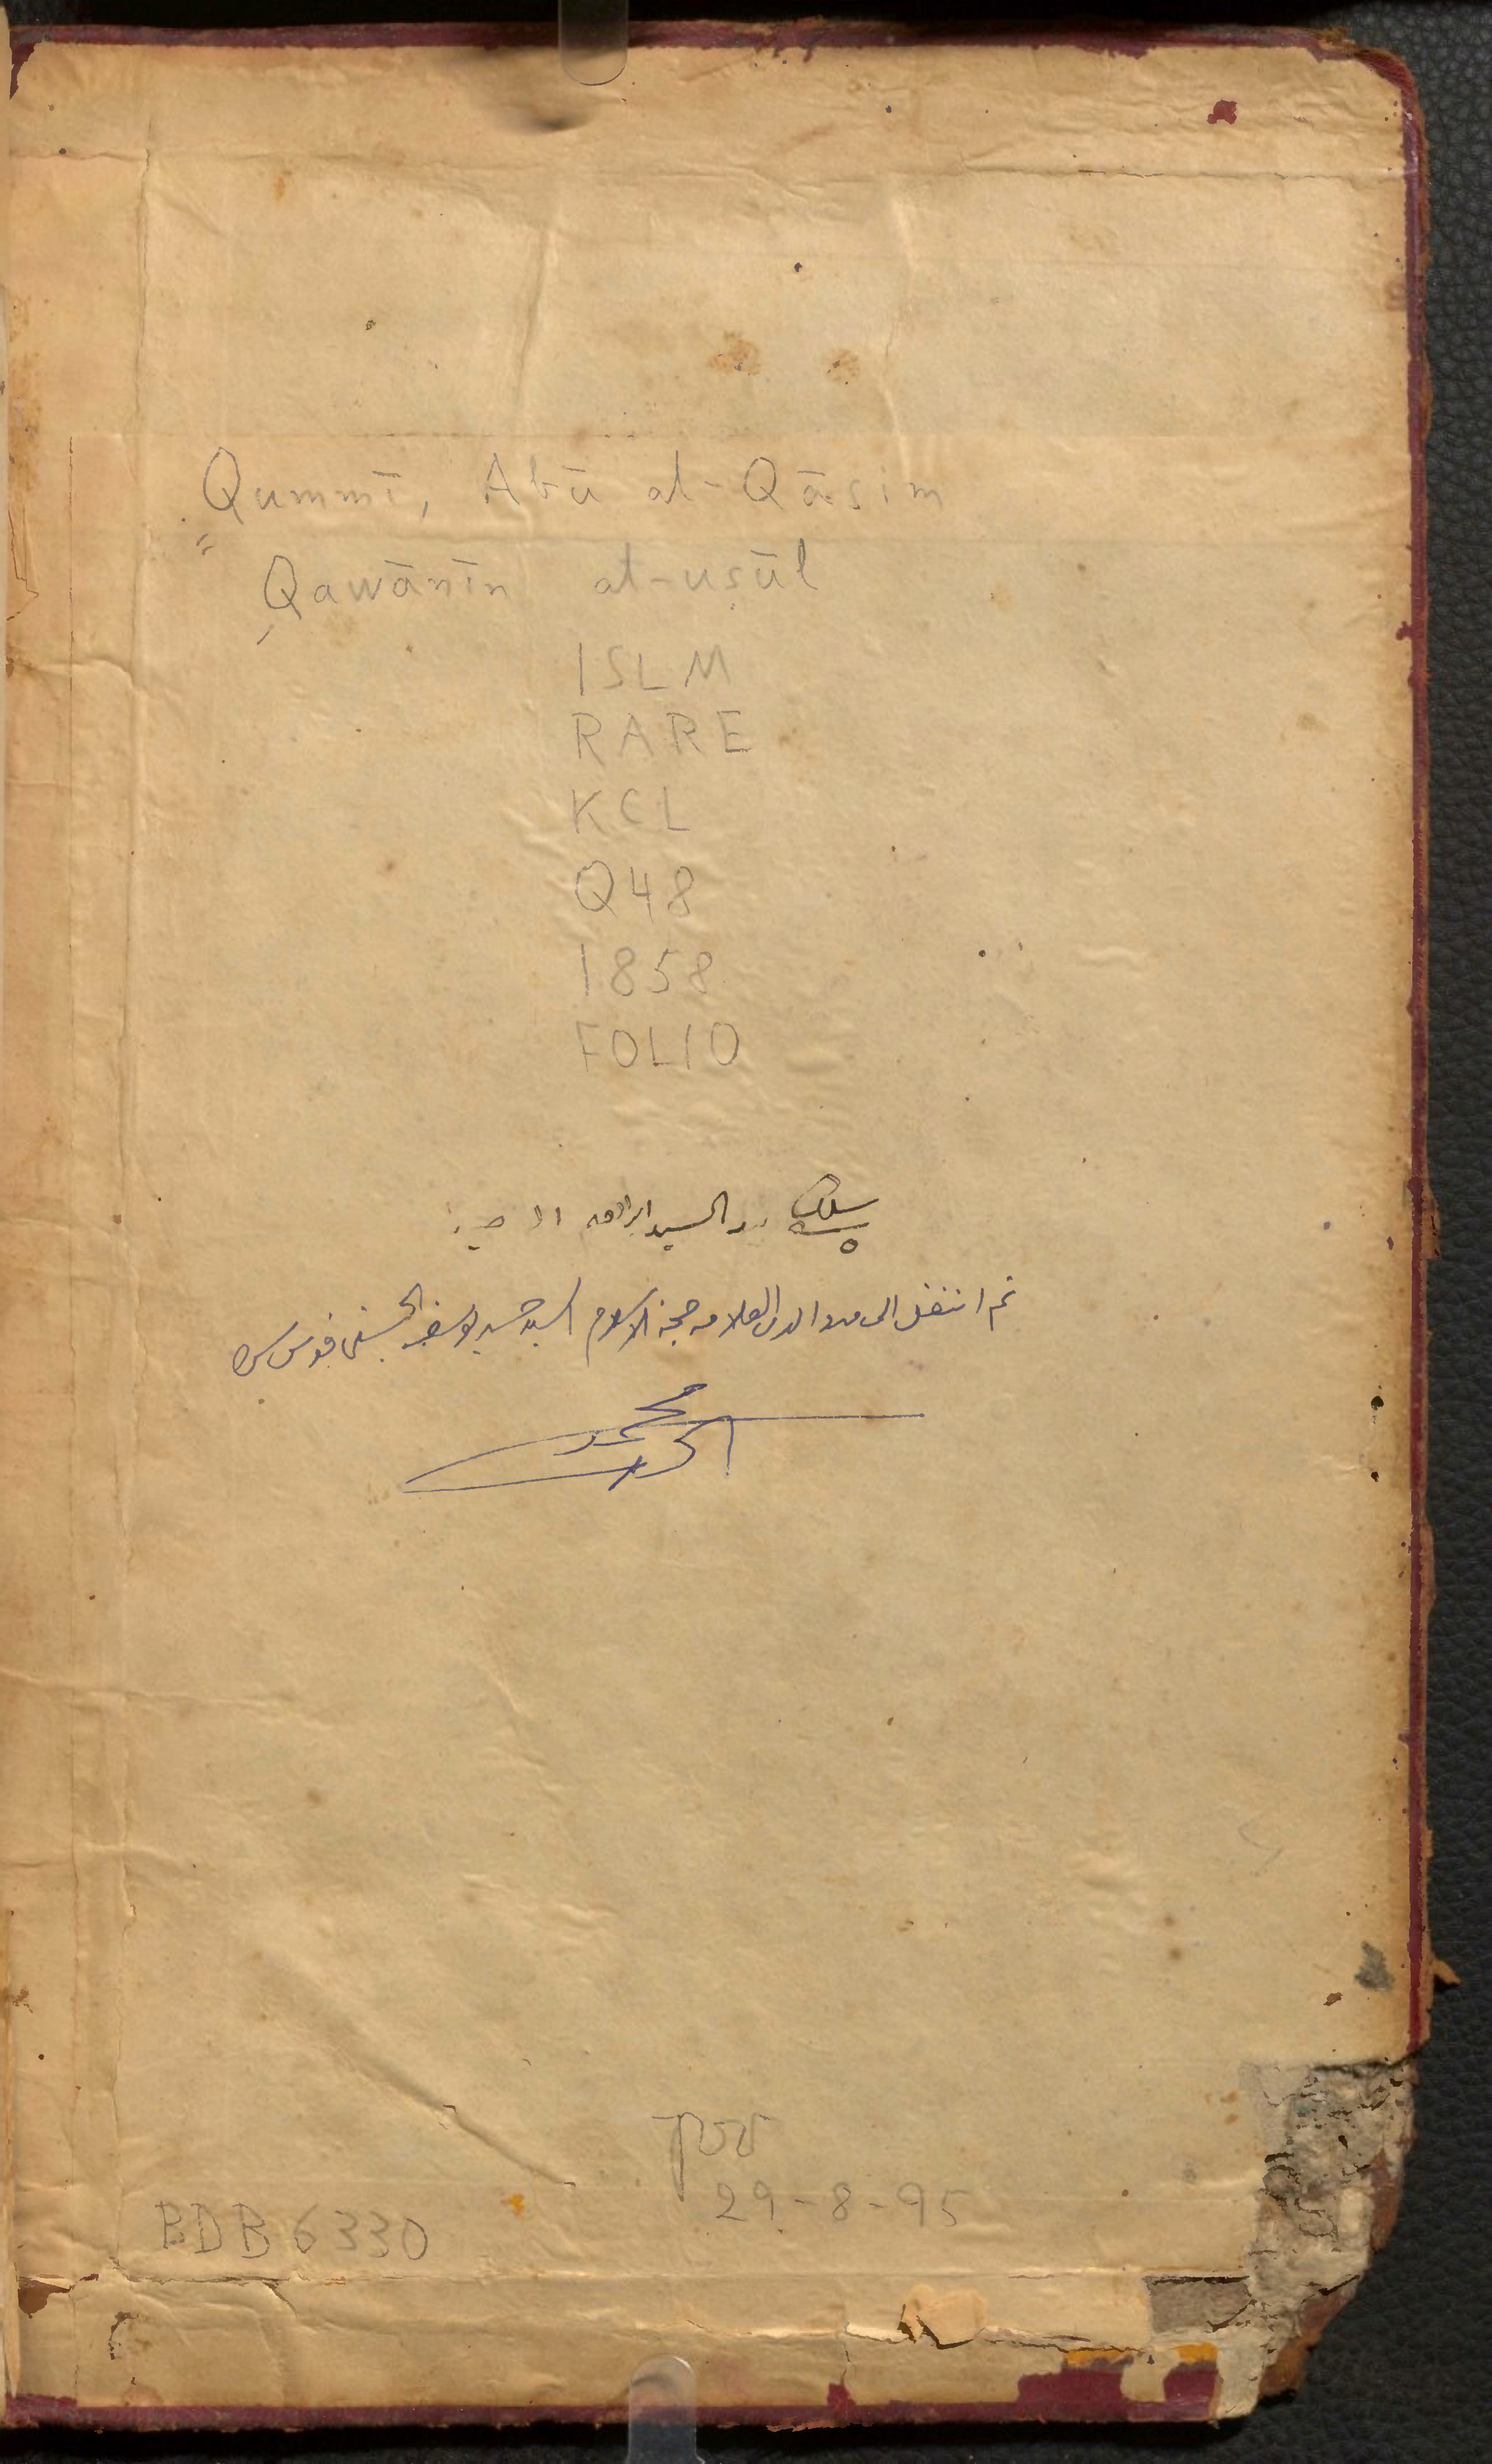 Qummī, Abū al-Qāsim
Qawānīn al-uṣūl
ISLM
RARE
KCL
Q48
1858
FOLIO
السيد ابراهيم
ثم انتقل الى العلامه حجة الاسلام السيد الحسيني
محمد
29-8-95
BDB 6330